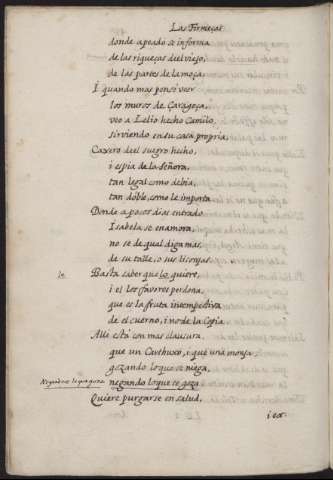 Las Firmeças
donde apeado se informa
de las riqueças del viejo,
de las partes de la moça.
I quando mas pensé ver
los muros de Çaragoça,
veo a Lelio hecho Camilo,
sirviendo en su casa propria,
Caxero de el suegro hecho,
i espia de la Señora,
tan legal como debia,
tan doble, como le importa
Donde a pocos dias entrado
Isabela se enamora,
no sé de qual diga mas,
de su talle, o sus lisonjas.
le Basta saber que lo quiere,
i el los favores perdona,
que es la fruta intempestiva
de el cuerno, i no de la Copia
Alli está con mas clausura,
que un Carthuxo, i que una monja
gozando lo que se niega,
negando lo que se goza.
Quiere purgarse en salud,
i es